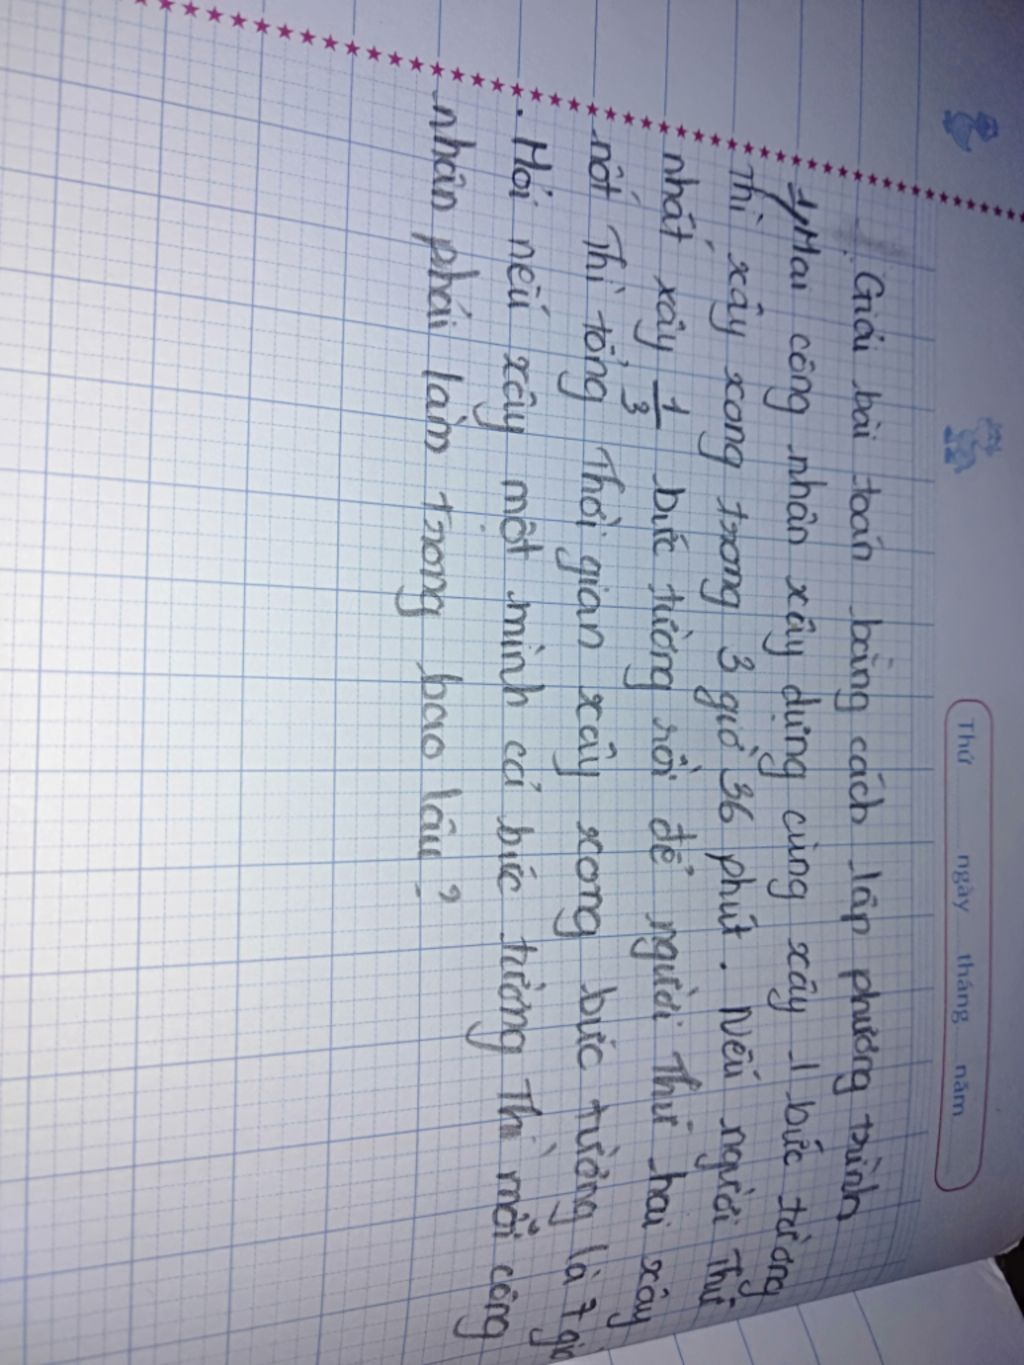 Thứ ngày tháng năm
Giải bài toán bằng cách lập phương trình
1, Hai công nhân xây dựng cùng xây 1 bức tường
thì xây xong trong 3 giờ 36 phút. Nếu người thứ
nhất xây 1/3 bức tường rồi để người thứ hai xây
nốt thì tổng thời gian xây xong bức tường là 7 giờ
. Hỏi nếu xây một mình cả bức tường thì mỗi công
nhân phải làm trong bao lâu?